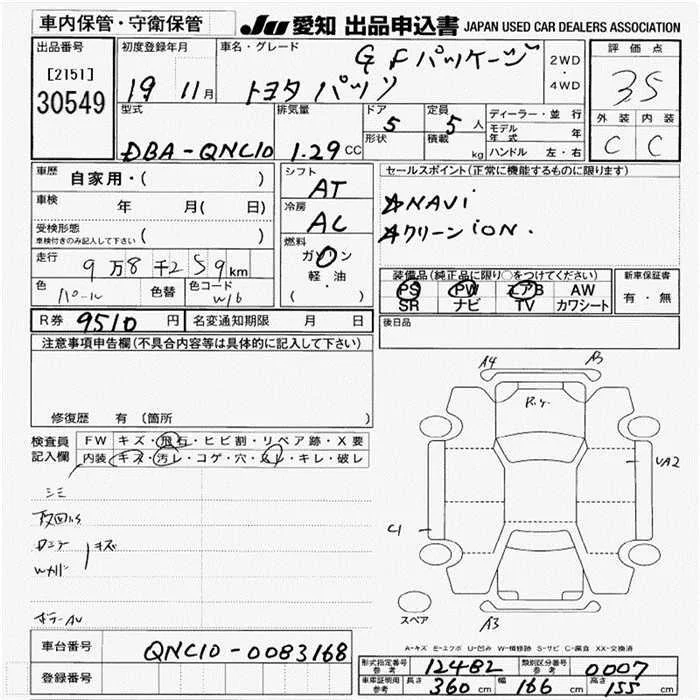 車内保管・守衛保管
JU 愛知 出品申込書 JAPAN USED CAR DEALERS ASSOCIATION
出品番号
[2151]
30549
初度登録年月
19 11月
車名・グレード
GFパッケージ
トヨタ パッソ
2WD
・
4WD
評価点
3.5
外装 内装
C C
型式
DBA-QNC10
排気量
1.29 CC
ドア
5
形状
定員
5 人
積載
kg
ディーラー・並行
モデル年式 年
ハンドル 左・右
車歴 自家用・( )
車検 年 月( 日)
受検形態
車検付きのみ記入して下さい ( )
走行 9万8千259km
色 パール 色替 色コード W16
シフト
AT
冷房
AC
燃料
ガソリン
軽・油
( ・ )
セールスポイント(正常に機能するものに限ります)
☆NAVi
☆クリーンiON.
装備品(純正品に限り○をつけてください)
PS PW エアB AW
SR ナビ TV カワシート
新車保証書
有・無
R券 9510 円 名変通知期限 月 日
後日品
注意事項申告欄(不具合内容等は具体的に記入して下さい)
修復歴 有 (箇所 )
検査員記入欄
FW キズ・飛石・ヒビ割・リペア跡・X要
内装 キズ・汚レ・コゲ・穴・スレ・キレ・破レ
シミ
キズ
A4 A3
UA2
C1
スペア
A3
A-キズ E-エクボ U-凹み W-補修跡 S-サビ C-腐食 XX-交換済
車台番号 QNC10-0083168
登録番号
形式指定番号 参考 12482 類別区分番号 参考 0007
車庫証明用 参考 長さ 360 cm 幅 166 cm 高さ 155 cm